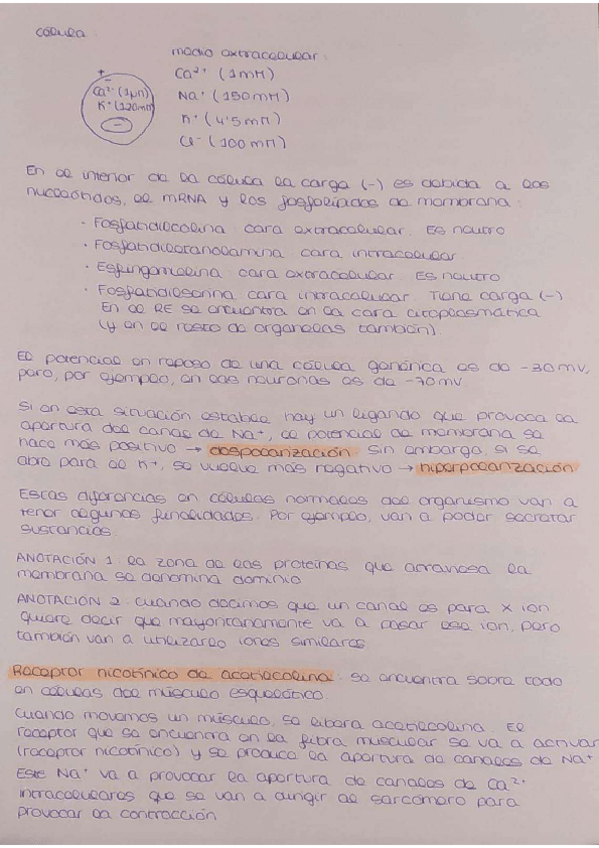 célula:
medio extracelular:
Ca²⁺ (1mM)
Na⁺ (150mM)
K⁺ (4'5mM)
Cl⁻ (100mM)
+
-
Ca²⁺ (1μM)
K⁺ (120mM)
-
En el interior de la célula la carga (-) es debida a los
nucleótidos, el mRNA y los fosfolípidos de membrana:
· Fosfatidilcolina: cara extracelular. Es neutro
· Fosfatidiletanolamina: cara intracelular.
· Esfingomielina: cara extracelular. Es neutro
· Fosfatidilserina: cara intracelular. Tiene carga (-)
En el RE se encuentra en la cara citoplasmática
(y en el resto de organelas también).
El potencial en reposo de una célula genérica es de -30mV,
pero, por ejemplo, en las neuronas es de -70mV.
Si en esta situación estable hay un ligando que provoca la
apertura del canal de Na⁺, el potencial de membrana se
hace más positivo → despolarización. Sin embargo, si se
abre para el K⁺, se vuelve más negativo → hiperpolarización
Estas diferencias en células normales del organismo van a
tener algunas finalidades. Por ejemplo, van a poder secretar
sustancias.
ANOTACIÓN 1: la zona de las proteínas que atraviesa la
membrana se denomina dominio
ANOTACIÓN 2: cuando decimos que un canal es para X ion
quiere decir que mayoritariamente va a pasar ese ion, pero
también van a utilizarlo iones similares
Receptor nicotínico de acetilcolina: se encuentra sobre todo
en células del músculo esquelético.
Cuando movemos un músculo, se libera acetilcolina. El
receptor que se encuentra en la fibra muscular se va a activar
(receptor nicotínico) y se produce la apertura de canales de Na⁺
Este Na⁺ va a provocar la apertura de canales de Ca²⁺
intracelulares que se van a dirigir al sarcómero para
provocar la contracción